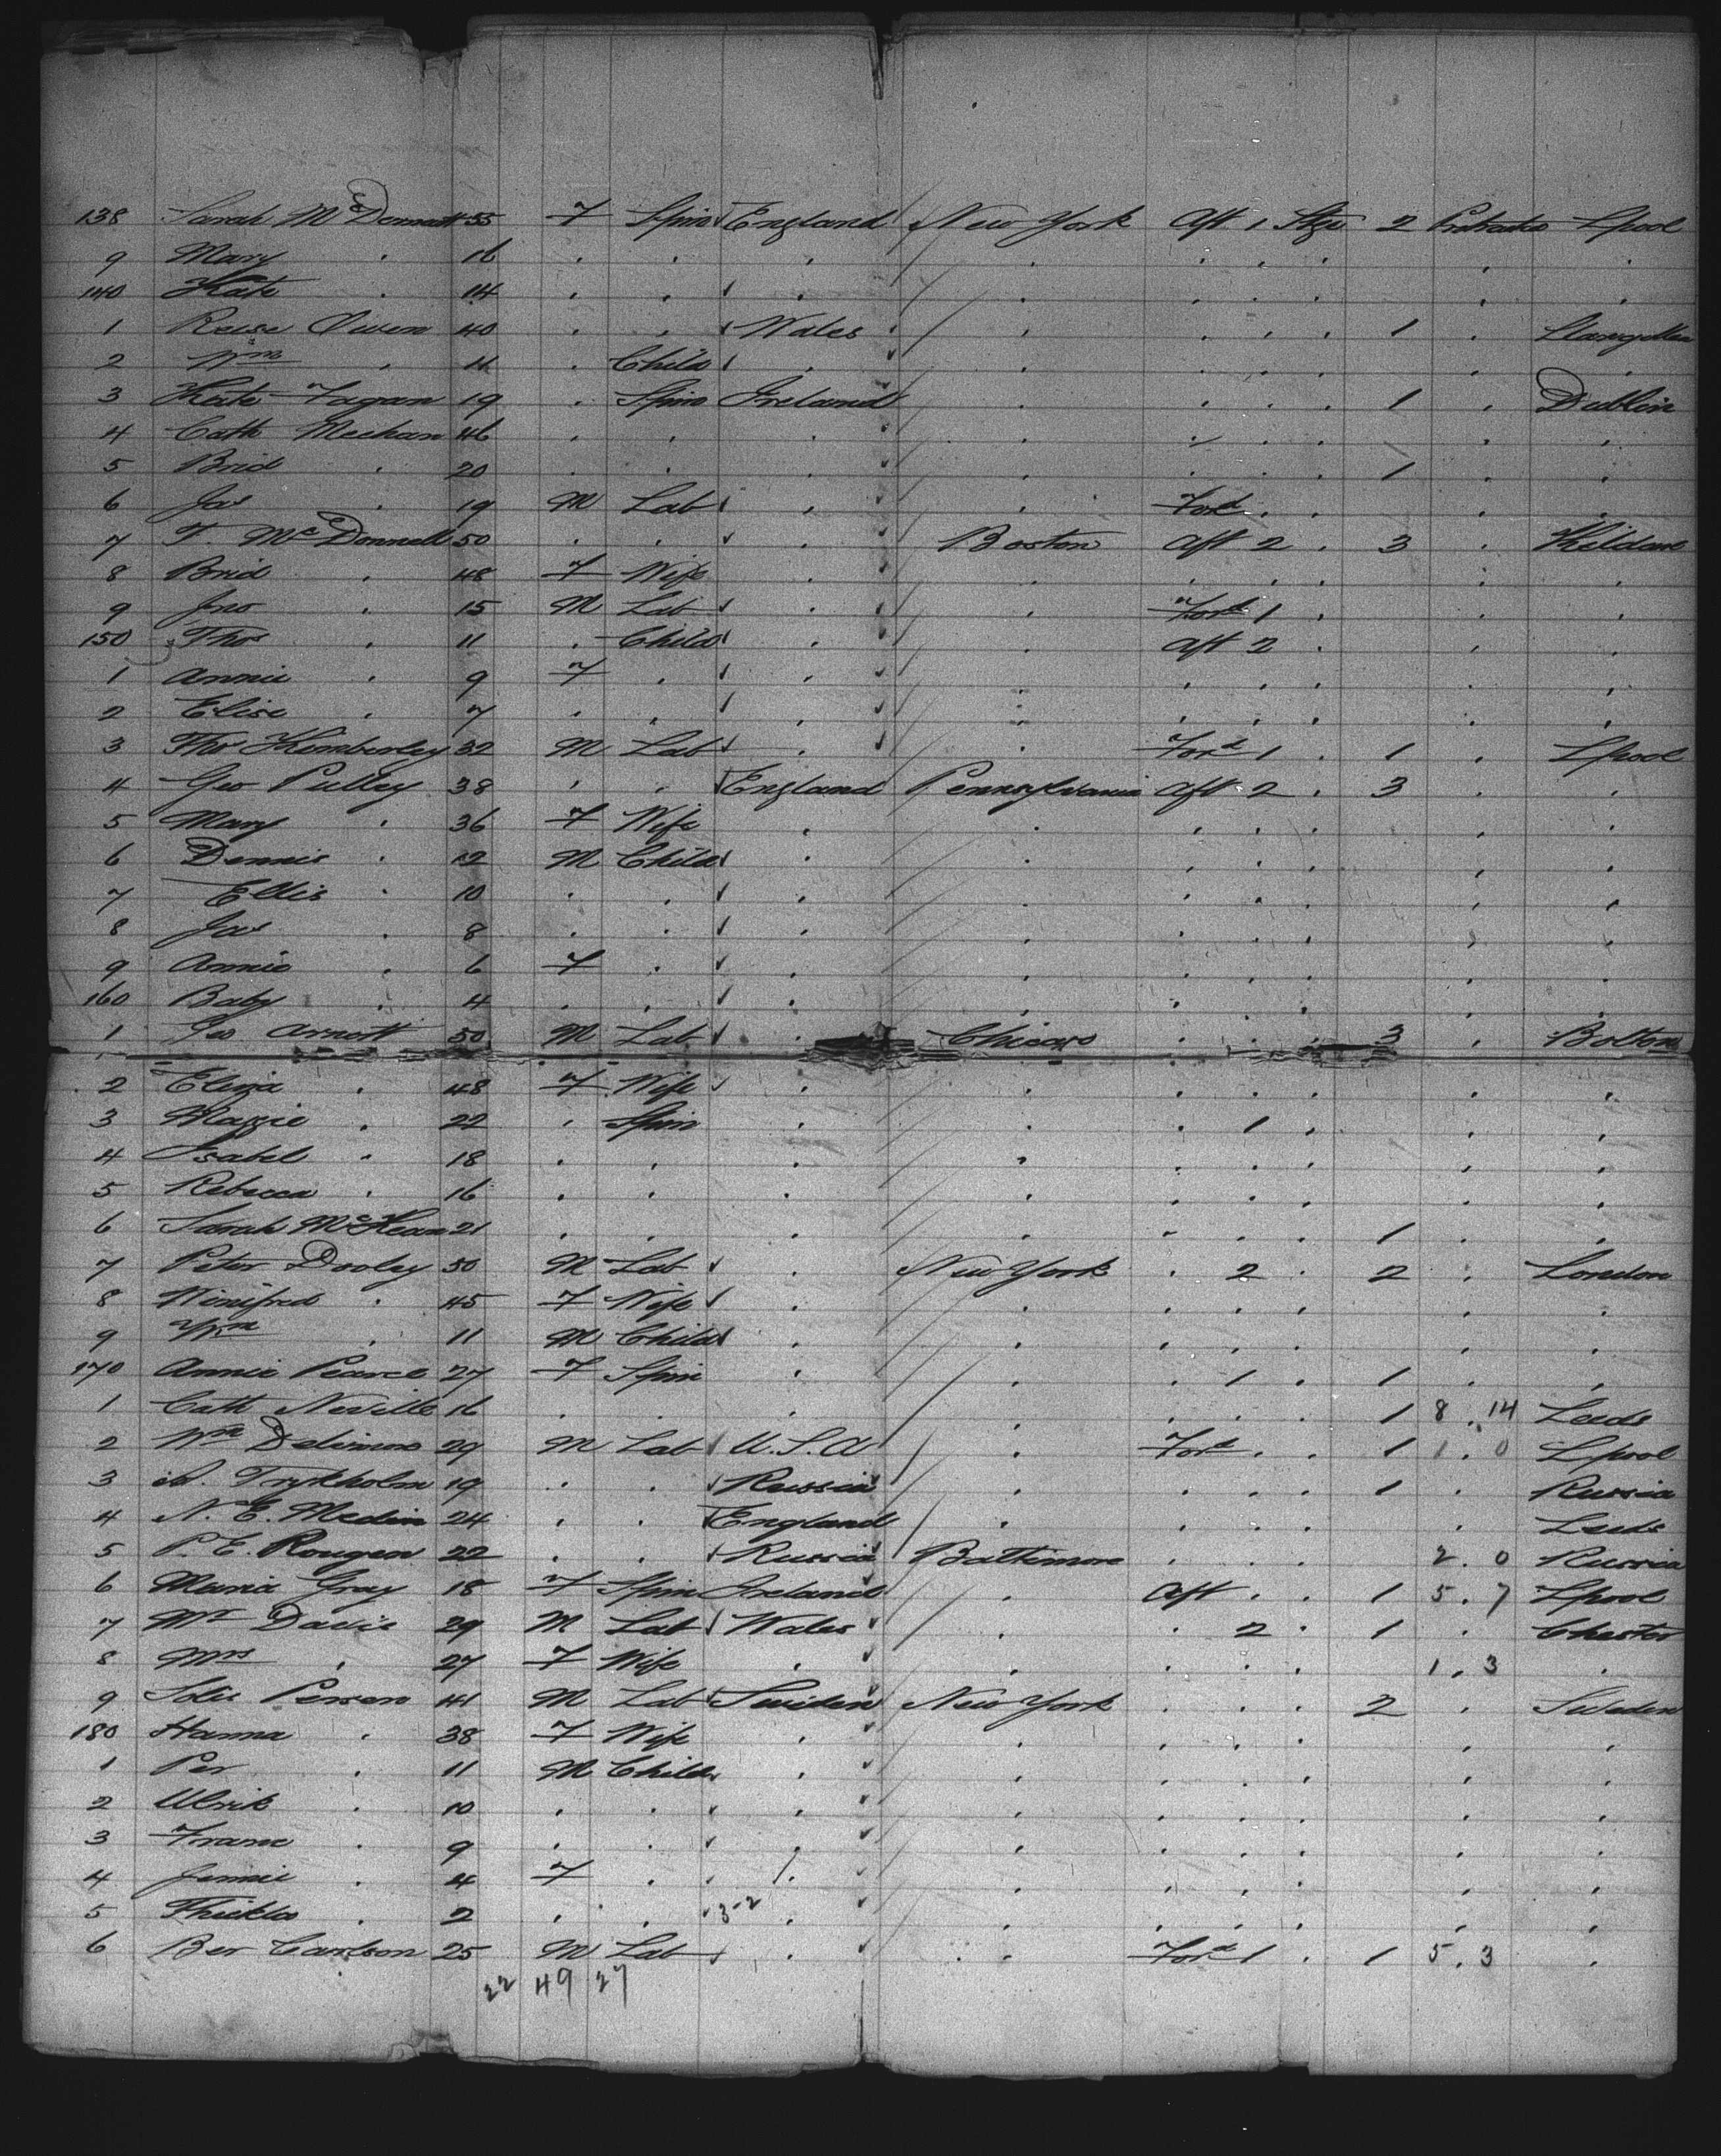 138 Sarah McDermott 55 F Spin England New York Aft 1 Stge 2 Protracted Lpool
9 Mary " 16 " " " " " " " " "
140 Kate " 14 " " " " " " " " "
1 Owen 40 " " Wales " " " " 1 " Llangollen
2 Wm " 11 " Child " " " " " " "
3 Kate Fagan 19 " Spin Ireland " " " " 1 " Dublin
4 Cath Meehan 46 " " " " " " " " "
5 Brid " 20 " " " " " " " 1 " "
6 Jas " 19 M Lab " " Ford " " " "
7 T. McDonnell 50 " " " Boston Aft 2 " 3 " Kildare
8 Brid " 48 F Wife " " " " " " "
9 Jno " 15 M Lab " " Ford 1 " " "
150 Thos " 11 " Child " " Aft 2 " " "
1 Annie " 9 F " " " " " " " "
2 Elise " 7 " " " " " " " " "
3 Thos Kimberley 32 M Lab " " Ford 1 " 1 " Lpool
4 Geo Pulley 38 " " England Pennsylvania Aft 2 " 3 " "
5 Mary " 36 F Wife " " " " " " "
6 Dennis " 12 M Child " " " " " " "
7 Ellis " 10 " " " " " " " " "
8 Jas " 8 " " " " " " " " "
9 Annie " 6 F " " " " " " " "
160 Baby " 4 " " " " " " " " "
1 Geo Arnott 50 M Lab " Chicago " " " 3 " Bolton
2 Eliza " 48 F Wife " " " " " " "
3 Maggie " 22 " Spin " " " 1 " " "
4 Isabel " 18 " " " " " " " " "
5 Rebecca " 16 " " " " " " " " "
6 Sarah McKean 21 " " " " " " " 1 " "
7 Peter Dooley 50 M Lab " New York " 2 " 2 " London
8 Winifred " 45 F Wife " " " " " " "
9 Wm " 11 M Child " " " " " " "
170 Annie Pearce 27 F Spin " " " 1 " 1 " "
1 Cath Neville 16 " " " " " " " 1 8 . 14 Leeds
2 Wm 29 M Lab U.S.A " Ford " " 1 1 . 0 Lpool
3 A. Trykholm 19 " " Russia " " " " 1 " Russia
4 N. E. Medin 24 " " England " " " " " Leeds
5 P. E. Rougen 22 " " Russia Baltimore " " " 2 . 0 Russia
6 Maria Gray 18 F Spin Ireland " Aft " " 1 5 . 7 Lpool
7 Mr Davis 29 M Lab Wales " " 2 " 1 " Chester
8 Mrs " 27 F Wife " " " " " 1 . 3 "
9 Persson 41 M Lab Sweden New York " " " 2 " Sweden
180 Hanna " 38 F Wife " " " " " " "
1 Per " 11 M Child " " " " " " "
2 Ulrik " 10 " " " " " " " " "
3 Frans " 9 " " " " " " " " "
4 Jennie " 4 F " " " " " " " "
5 Thiekla " 2 " " 3-2 " " " " " " "
6 Ber Carlson 25 M Lab " " Ford 1 " 1 5 . 3 "
22 49 27